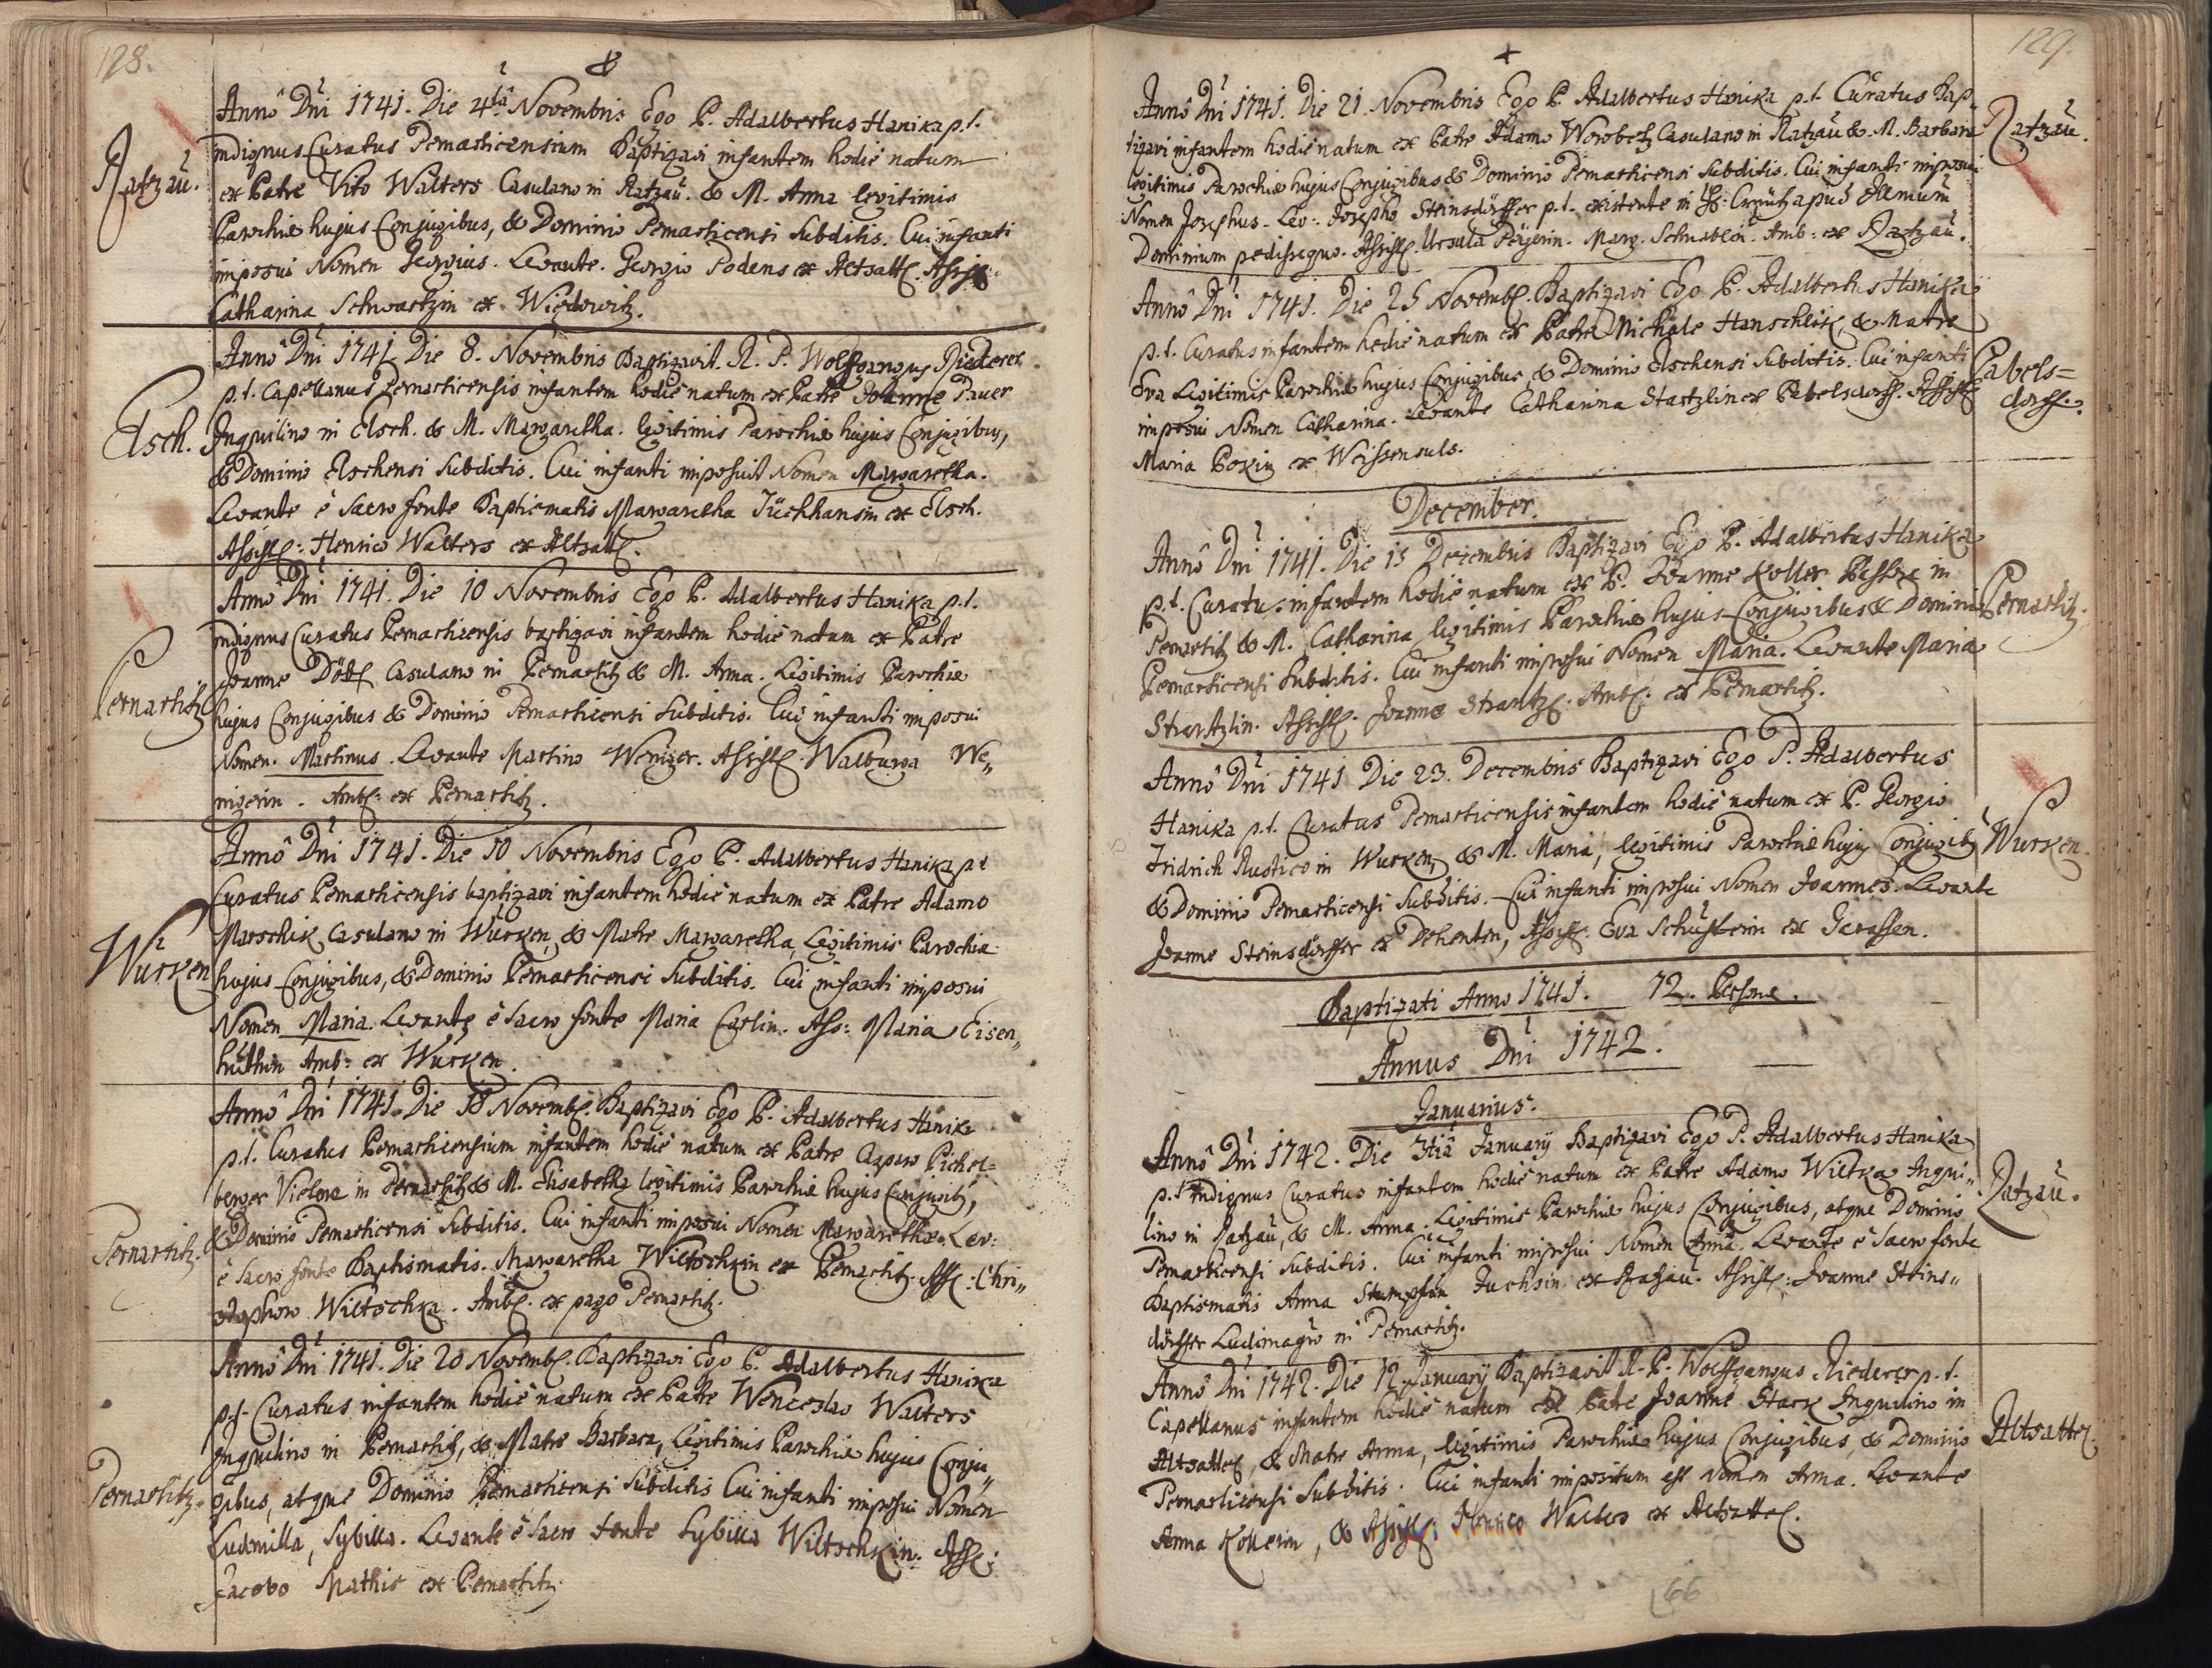 128.
Anno Dni 1741. Die 4ta Novembris Ego P. Adalbertus Hanika p.t.
indignus Curatus Pernarticensium Baptizavi infantem hodie natum
Ratzau. ex Patre Vito Walters Casulano in Ratzau. & M. Anna legitimis
Parochiæ hujus Conjugibus, & Dominio Pernarticensi Subditis. Cui infanti
imposui Nomen Georgius. Levante. Georgio Podens ex Altsattl.
Catharina Schwartzin ex Wiedowitz.
Anno Dni 1741 Die 8. Novembris Baptizavit. R. P. Wolfgangus Riederer
p.t. Capellanus Pernarticensis infantem hodie natum ex Patre Joanne Pauer
Elsch. Inquilino in Elsch. & M. Margaretha. legitimis Parochiæ hujus Conjugibus,
& Dominio Elschensi Subditis. Cui infanti imposuit Nomen Margaretha.
Levante è Sacro fonte Baptismatis Margaretha Füchhansin ex Elsch.
Assistl: Henrico Walters ex Altsattl.
Anno Dni 1741. Die 10 Novembris Ego P. Adalbertus Hanika p.t.
indignus Curatus Pernarticensis baptizavi infantem hodie natum ex Patre
Joanne Casulano in Pernartitz & M. Anna. Legitimis Parochiæ
Pernartitz hujus Conjugibus & Dominio Pernarticensi Subditis. Cui infanti imposui
Nomen. Martinus. Levante Martino Weniger. Assistl. Walburga We„
nigerin. Ambl: ex Pernartitz.
Anno Dni 1741. Die 10 Novembris Ego P. Adalbertus Hanika p.t
Curatus Pernarticensis baptizavi infantem hodie natum ex Patre Adamo
Marschik Casulano in Wurken & Matre Margaretha, Legitimis Parochiæ
Wurken hujus Conjugibus, & Dominio Pernarticensi Subditis. Cui infanti imposui
Nomen Maria. Levante è Sacro fonte Maria Carlin. Ass: Maria Eisen„
huthin Amb: ex Wurken.
Anno Dni 1741. Die Novembl. Baptizavi Ego P. Adalbertus Hanika
p.t. Curatus Pernarticensium infantem hodie natum ex Patre Casparo Pichel=
berger Vietore in Pernartitz & M. Elisabetha legitimis Parochiæ hujus Conjugib9,
Pernartitz. & Dominio Pernarticensi Subditis. Cui infanti imposui Nomen Margaretha. Lev:
è Sacro fonte Baptismatis. Margaretha Wiltschkin ex Pernartitz. Assl: Chri„
stophoro Wiltschka. Ambl. ex pago Pernartitz.
Anno Dni 1741. Die 20 Novembl. Baptizavi Ego P. Adalbertus Hanika
p.t. Curatus infantem hodie natum ex Patre Wenceslao Walters
Inquilino in Pernartitz, & Matre Barbara, Legitimis Parochiæ hujus Conju„
Pernartitz. gibus, atque Dominio Pernarticensi Subditis Cui infanti imposui Nomen
Ludmilla, Sybilla. Levante è Sacro fonte Sybilla Wiltschkin. Assl:
Jacobo Mathis ex Pernartitz.
129.
Anno Dni 1741. Die 21. Novembris Ego P. Adalbertus Hanika p.t. Curatus Bap„
tizavi infantem hodie natum ex Patre Adamo Worobetz Casulano in Ratzau & M. Barbara Ratzau.
legitimis Parochiæ hujus Conjugibus & Dominio Pernarticensi Subditis. Cui infanti imposui
Nomen Josephus. Lev: Josepho Steinsdörffer p.t. existente in apud
Dominium pedissequo. Assistl. Ursula Marg. Amb: ex Ratzau.
Anno Dni 1741. Die 25 Novembl. Baptizavi Ego P. Adalbertus Hanika
p.t. Curatus infantem hodie natum ex Patre Michäle Hanschlik, & Matre
Eva Legitimis Parochiæ hujus Conjugibus, & Dominio Elschensi Subditis. Cui infanti Pabels=
imposui Nomen Catharina. Levante Catharina Startzlin ex Pabelsdorff. Assistl dorff.
Maria Pokin ex Weissensuls.
December.
Anno Dni 1741. Die 15 Decembris Baptizavi Ego P. Adalbertus Hanika
p.t. Curatus infantem hodie natum ex P. Joanne Koller Pistore in
Pernartitz & M. Catharina legitimis Parochiæ hujus Conjugibus & Dominio Pernartitz.
Pernarticensi Subditis. Cui infanti imposui Nomen Maria. Levante Maria
Startzlin. Assistl. Joanne Startzl. Ambl: ex Pernartitz.
Anno Dni 1741 Die 23. Decembris Baptizavi Ego P. Adalbertus
Hanika p.t. Curatus Pernarticensis infantem hodie natum ex P. Georgio
Fridrich Rustico in Wurken & M. Maria, legitimis Parochiæ hujus Conjugib9 Wurken.
& Dominio Pernarticensi Subditis. Cui infanti imposui Nomen Joannes. Levante
Joanne Steinsdörffer ex Dehenten, Assistl. Eva Schusterin ex Gerassen.
Baptizati Anno 1741. 72. Personæ.
Annus Dni 1742.
Januarius.
Anno Dni 1742. Die 3tia January Baptizavi Ego P. Adalbertus Hanika
p.t indignus Curatus infantem hodie natum ex Patre Adamo Wiltka Inqui„ Ratzau.
lino in Ratzau, & M. Anna. Legitimis Parochiæ hujus Conjugibus, atque Dominio
Pernarticensi Subditis. Cui infanti imposui Nomen Anna. Levante è Sacro fonte
Baptismatis Anna Fuchsin ex Ratzau. Assistl: Joanne Steins„
dörffer Ludimagro in Pernartitz.
Anno Dni 1742. Die 12 January Baptizavit R. P. Wolffgangus Riederer p.t.
Capellanus infantem hodie natum ex Patre Joanne Stark Inquilino in
Altsattel, & Matre Anna, legitimis Parochiæ hujus Conjugibus, & Dominio Altsattel.
Pernarticensi Subditis. Cui infanti impositum est Nomen Anna. Levante
Anna Kollerin, & Assistl: Henrico Walters ex Altsattel.
66